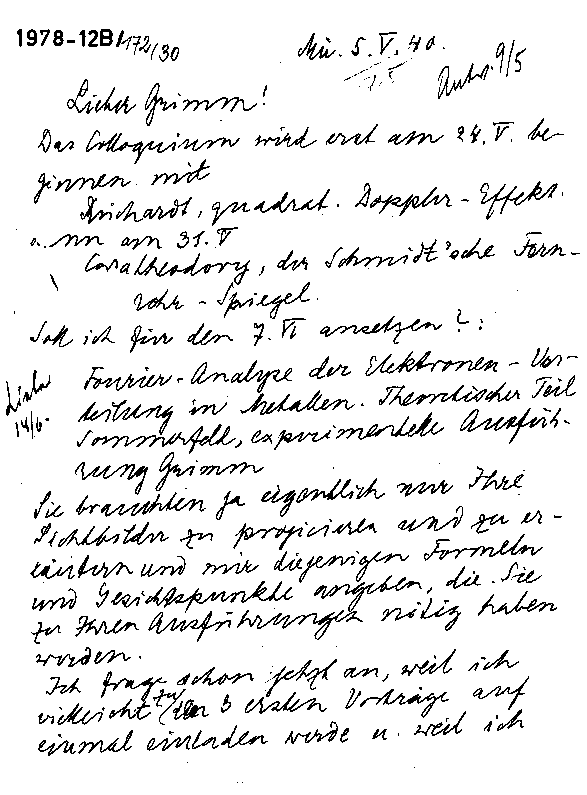 1978-12B/172/30
Mü. 5. V. 40.
7.5
Antw. 9/5
Lieber Grimm!
Das Colloquium wird erst am 24. V. be-
ginnen mit
Ruchardt, quadrat. Doppler-Effekt.
u. nn am 31. V
Caratheodory, der Schmidt'sche Fern-
rohr-Spiegel.
Soll ich für den 7. VI ansetzen?:
Fourier-Analyse der Elektronen-Ver-
teilung in Metallen. Theoretischer Teil
14/6.
Sommerfeld, experimentelle Ausfüh-
rung Grimm
Sie brauchten ja eigentlich nur Ihre
Lichtbilder zu projicieren und zu er-
läutern und mir diejenigen Formeln
und Gesichtspunkte angeben, die Sie
zu Ihren Ausführungen nötig haben
werden.
Ich frage schon jetzt an, weil ich
vielleicht zu den 3 ersten Vorträge auf
einmal einladen werde u. weil ich